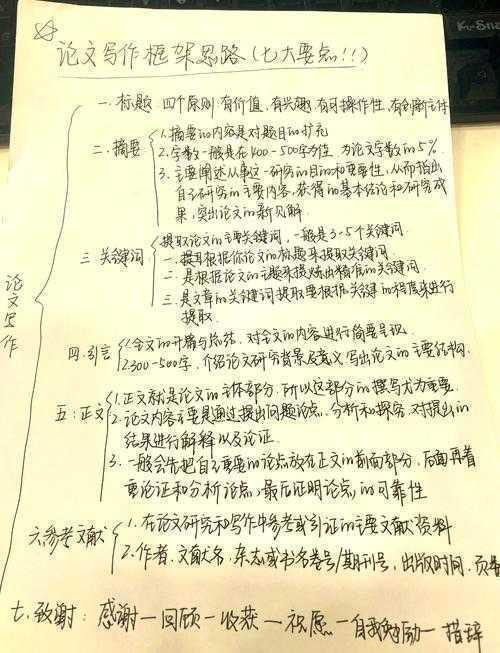 论文写作框架思路（七大要点!!!）
论文写作
一.标题 四个原则:有价值,有兴趣,有可操作性,有创新立体
二.摘要
1.摘要的内容是对题目的扩充
2.字数一般是在400-500字为佳,为论文字数的5%.
3.主要阐述从事这一研究的目的和重要性,从而指出
自己研究的主要内容,获得的基本结论和研究成
果,突出论文的新见解.
三 关键词
提取论文的主要关键词,一般是3-5个关键词.
一.提取根据你论文的标题来提取关键词.
二 是根据论文的主题来提炼出精准的关键词.
三.是文章的关键词提取要根据关键的程度来进行
提取.
四.引言
1.全文的开篇与总结,对全文的内容进行简要呈现.
2.300-500字,介绍论文研究背景及意义,写出论文的主要结构.
五:正文
1.正文就是论文的主体部分,所以这部分的撰写尤为重要.
2.论文内容主要是通过提出问题论点,分析和探究,对提出的
结果进行解释以及论证.
3.一般会先把自己重要的论点放在正文的前面部分,后面再着
重论证和分析论点,最后证明论点的可靠性
六.参考文献
1.在论文研究和写作中参考或引证的主要文献资料
2.作者.文献名.杂志或书名卷号/期刊号,出版时间.页
七.致谢: 感谢一回顾一收获一祝愿一自我勉励一措辞